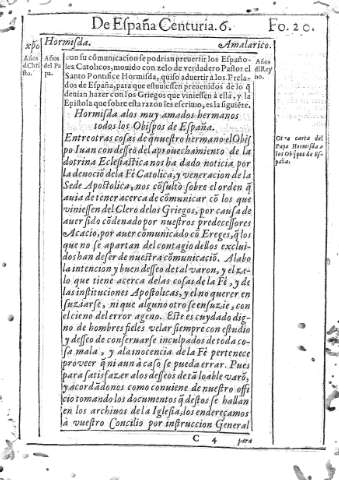 De España Centuria. 6.
Fo. 20.
xpo
Hormisda.
Amalarico.
Años
de Chri
sto.
Años
del Pa
pa.
Años
del Rey
no.
con su cõmunicacion se podrian preuertir los Españo-
les Catolicos, mouido con zelo de verdadero Pastor el
Santo Pontifice Hormisda, quiso aduertir a los Prela-
dos de España, para que estuuiessen preuenidos de lo q̃
deuian hazer con los Griegos que viniessen à ella, y la
Epistola que sobre esta razon les escriuio, es la siguiẽte.
Hormisda alos muy amados hermanos
todos los Obispos de España.
Otra carta del
Papa Hormisda a
los Obispos de Es-
paña.
Entre otras cosas de q̃ nuestro hermano el Obis
po Iuan con desseo del aprouechamiento de la
dotrina Eclesiastica nos ha dado noticia por
la deuociõ dela Fè Catolica, y veneracion de la
Sede Apostolica, nos cõsultò sobre el orden q̃
auia de tener acerca de cõmunicar cõ los que
viniessen del Clero delos Griegos, por causa de
auer sido cõdenado por nuestros predecessores
Acacio, por auer cõmunicado cõ Ereges, q̃ los
que no se apartan del contagio dellos exclui-
dos han de ser de nuestra cõmunicaciõ. Alabo
la intencion y buen desseo de tal varon, y el ze-
lo que tiene acerca de las cosas de la Fè, y de
las instituciones Apostolicas, y el no querer en
suziarse, ni que alguno otro se ensuzie, con
el cieno del error ageno. Este es cuydado dig-
no de hombres fieles velar siempre con estudio
y desseo de conseruarse inculpados de toda co-
sa mala, y a la inocencia de la Fè pertenece
proueer q̃ ni aun à caso se pueda errar. Pues
para satisfazer a los desseos de tã loable varõ,
y acordãdonos como conuiene de nuestro offi
cio tomando los documentos q̃ destos se hallan
en los archiuos de la Iglesia, los endereçamos
à vuestro Concilio por instruccion General
C 4
para